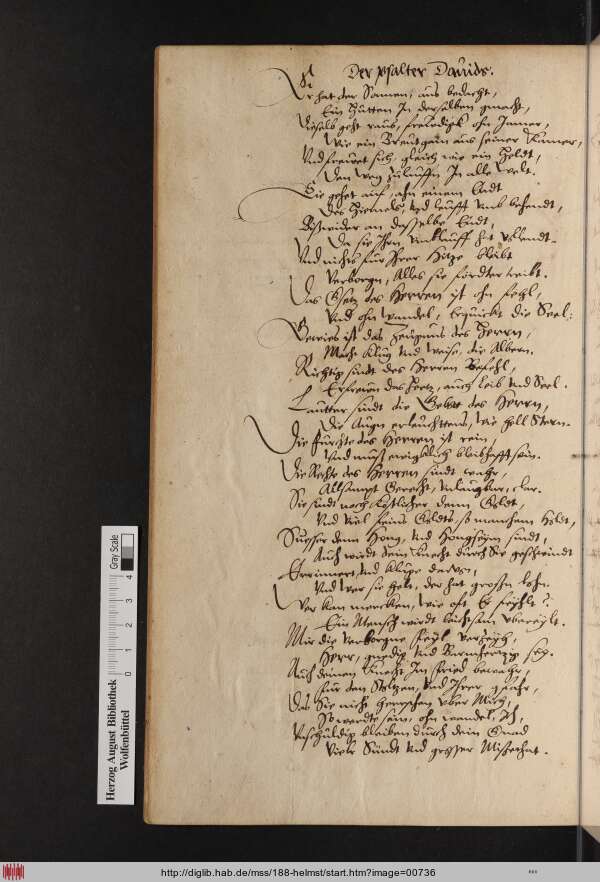 Der psalter Dauids.
Er hat der Sonnen, aus bedacht,
Ein Hutten In derselben gmacht,
Dieselb geht raus, freiwdigk ohn Jamer,
Wie ein Breutgam aus seiner Kamer,
Vnd frewet sich, gleich wie ein Heldt,
Den weg zulauffn In alle welt.
Sie gehet auf, ahn einem Endt
Des Himels, vnd leufft vmb behendt,
Bis wider an dasselbe Endt,
Da sie Ihrn vmblauff hat vollendt.
Vnd nichts fur Ihrer Hitze bleibt
Verborgn, Alles sie
Das Gsetz des Herren ist ohn fehl,
Vnd ohn wandel, Erquickt die Seel:
Gewies ist das Zeugnus des Herrn,
Macht klug vnd weise, die Albern.
Richtig sindt des Herren Befehl,
Erfrewen das Hertz, auch leib vnd Seel.
Lautter sindt die Gebott des Herrn,
Die Augn erleuchttens, wie hell Stern.
Die furchte des Herren ist rein,
Vnd muss ewigklich bleibhafft sein.
Die Rechte des Herren sindt wahr,
Allsampt Gerecht, vnlaugbar, clar.
Sie sindt noch kostlicher denn Goldt,
Vnd viel feins Goldts, so manchem holdt,
Suesser denn Honig, vnd Hongseym sindt,
Auch wirdt dein knecht durch Sie geschwindt
Errinnert, vnd
Vnd wer sie helt, der hat grossn lohn.
Wer kan mercken, wie oft Er feyhlt?
Ein Mensch wirdt leichtsam vbereylt.
Mir die verborgne feyl verzeyh,
Herr, gnedig vnd Barmhertzig sey.
Auch deinen Knecht Im fried bewahr,
fur den Stoltzen, vnd Ihrer gfahr,
Das Sie nicht herrschen vber Mich,
So werdt sein, ohn wandel, Ich,
Vnschuldig bleiben durch dein Gnad
Vieler Sundt vnd grosser Missethat.
Herzog August Bibliothek
Wolfenbüttel
0 1 2 3 4
Gray Scale
http://diglib.hab.de/mss/188-helmst/start.htm?image=00736